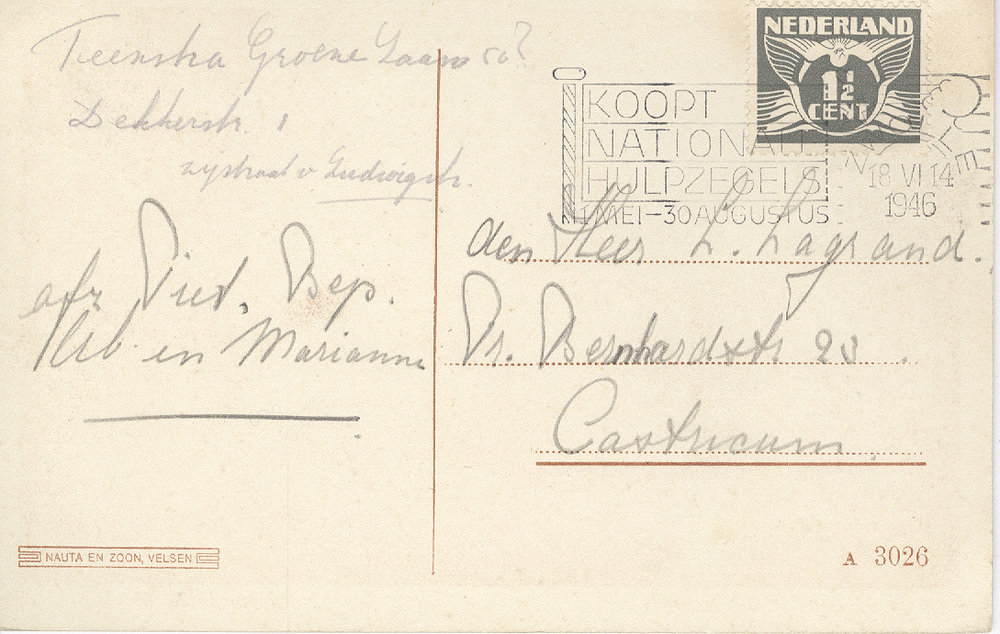 Teenstra Groene Laan 50?
Dekkerstr. 1
zijstraat v Ludwigstr.
afz Piet, Bep.
en Marianne
NAUTA EN ZOON, VELSEN
NEDERLAND
1½
CENT
KOOPT
NATIONALE
HULPZEGELS
1 MEI-30 AUGUSTUS
18 VI 14
1946
den Heer L. Lagrand.
Pr. Bernhardstr 23.
Castricum.
A 3026